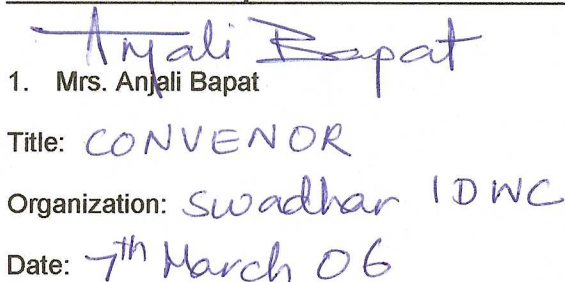 Anjali Bapat
1. Mrs. Anjali Bapat
Title: CONVENOR
Organization: Swadhar IDWC
Date: 7th March 06